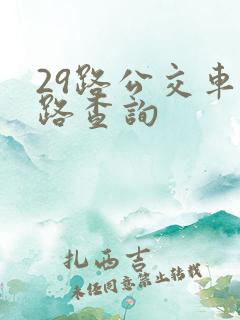 29路公交车
路查詢
扎西吉
未经同意禁止转载